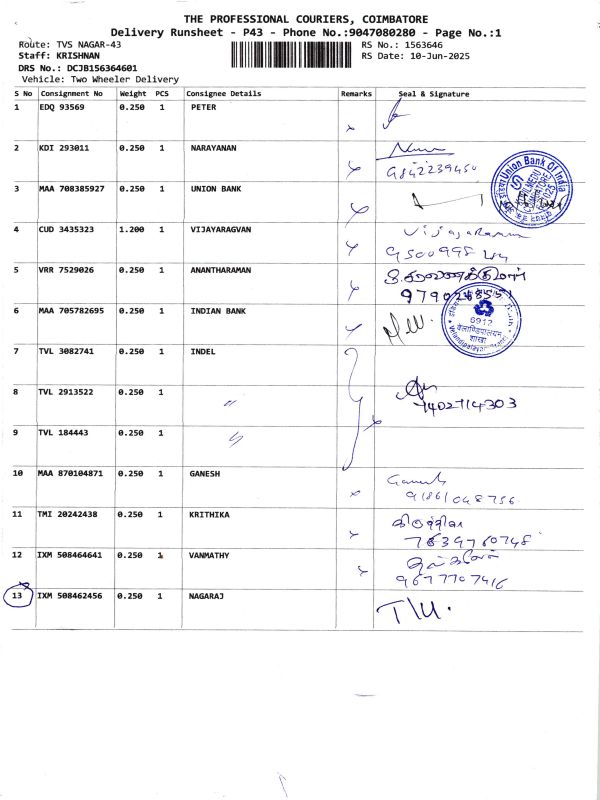 THE PROFESSIONAL COURIERS, COIMBATORE
Delivery Runsheet - P43 - Phone No.:9047080280 - Page No.:1
Route: TVS NAGAR-43 RS No.: 1563646
Staff: KRISHNAN RS Date: 10-Jun-2025
DRS No.: DCJB156364601
Vehicle: Two Wheeler Delivery
S No Consignment No Weight PCS Consignee Details Remarks Seal & Signature
1 EDQ 93569 0.250 1 PETER
2 KDI 293011 0.250 1 NARAYANAN
9842239450
3 MAA 708385927 0.250 1 UNION BANK
Union Bank Of India
4 CUD 3435323 1.200 1 VIJAYARAGVAN
5 VRR 7529026 0.250 1 ANANTHARAMAN
6 MAA 705782695 0.250 1 INDIAN BANK
6912
शाखा
7 TVL 3082741 0.250 1 INDEL
8 TVL 2913522 0.250 1 〃
7402714303
9 TVL 184443 0.250 1 〃
10 MAA 870104871 0.250 1 GANESH
Ganesh
91861048756
11 TMI 20242438 0.250 1 KRITHIKA
கிருத்திகா
7639760748
12 IXM 508464641 0.250 1 VANMATHY
9677707416
13 IXM 508462456 0.250 1 NAGARAJ